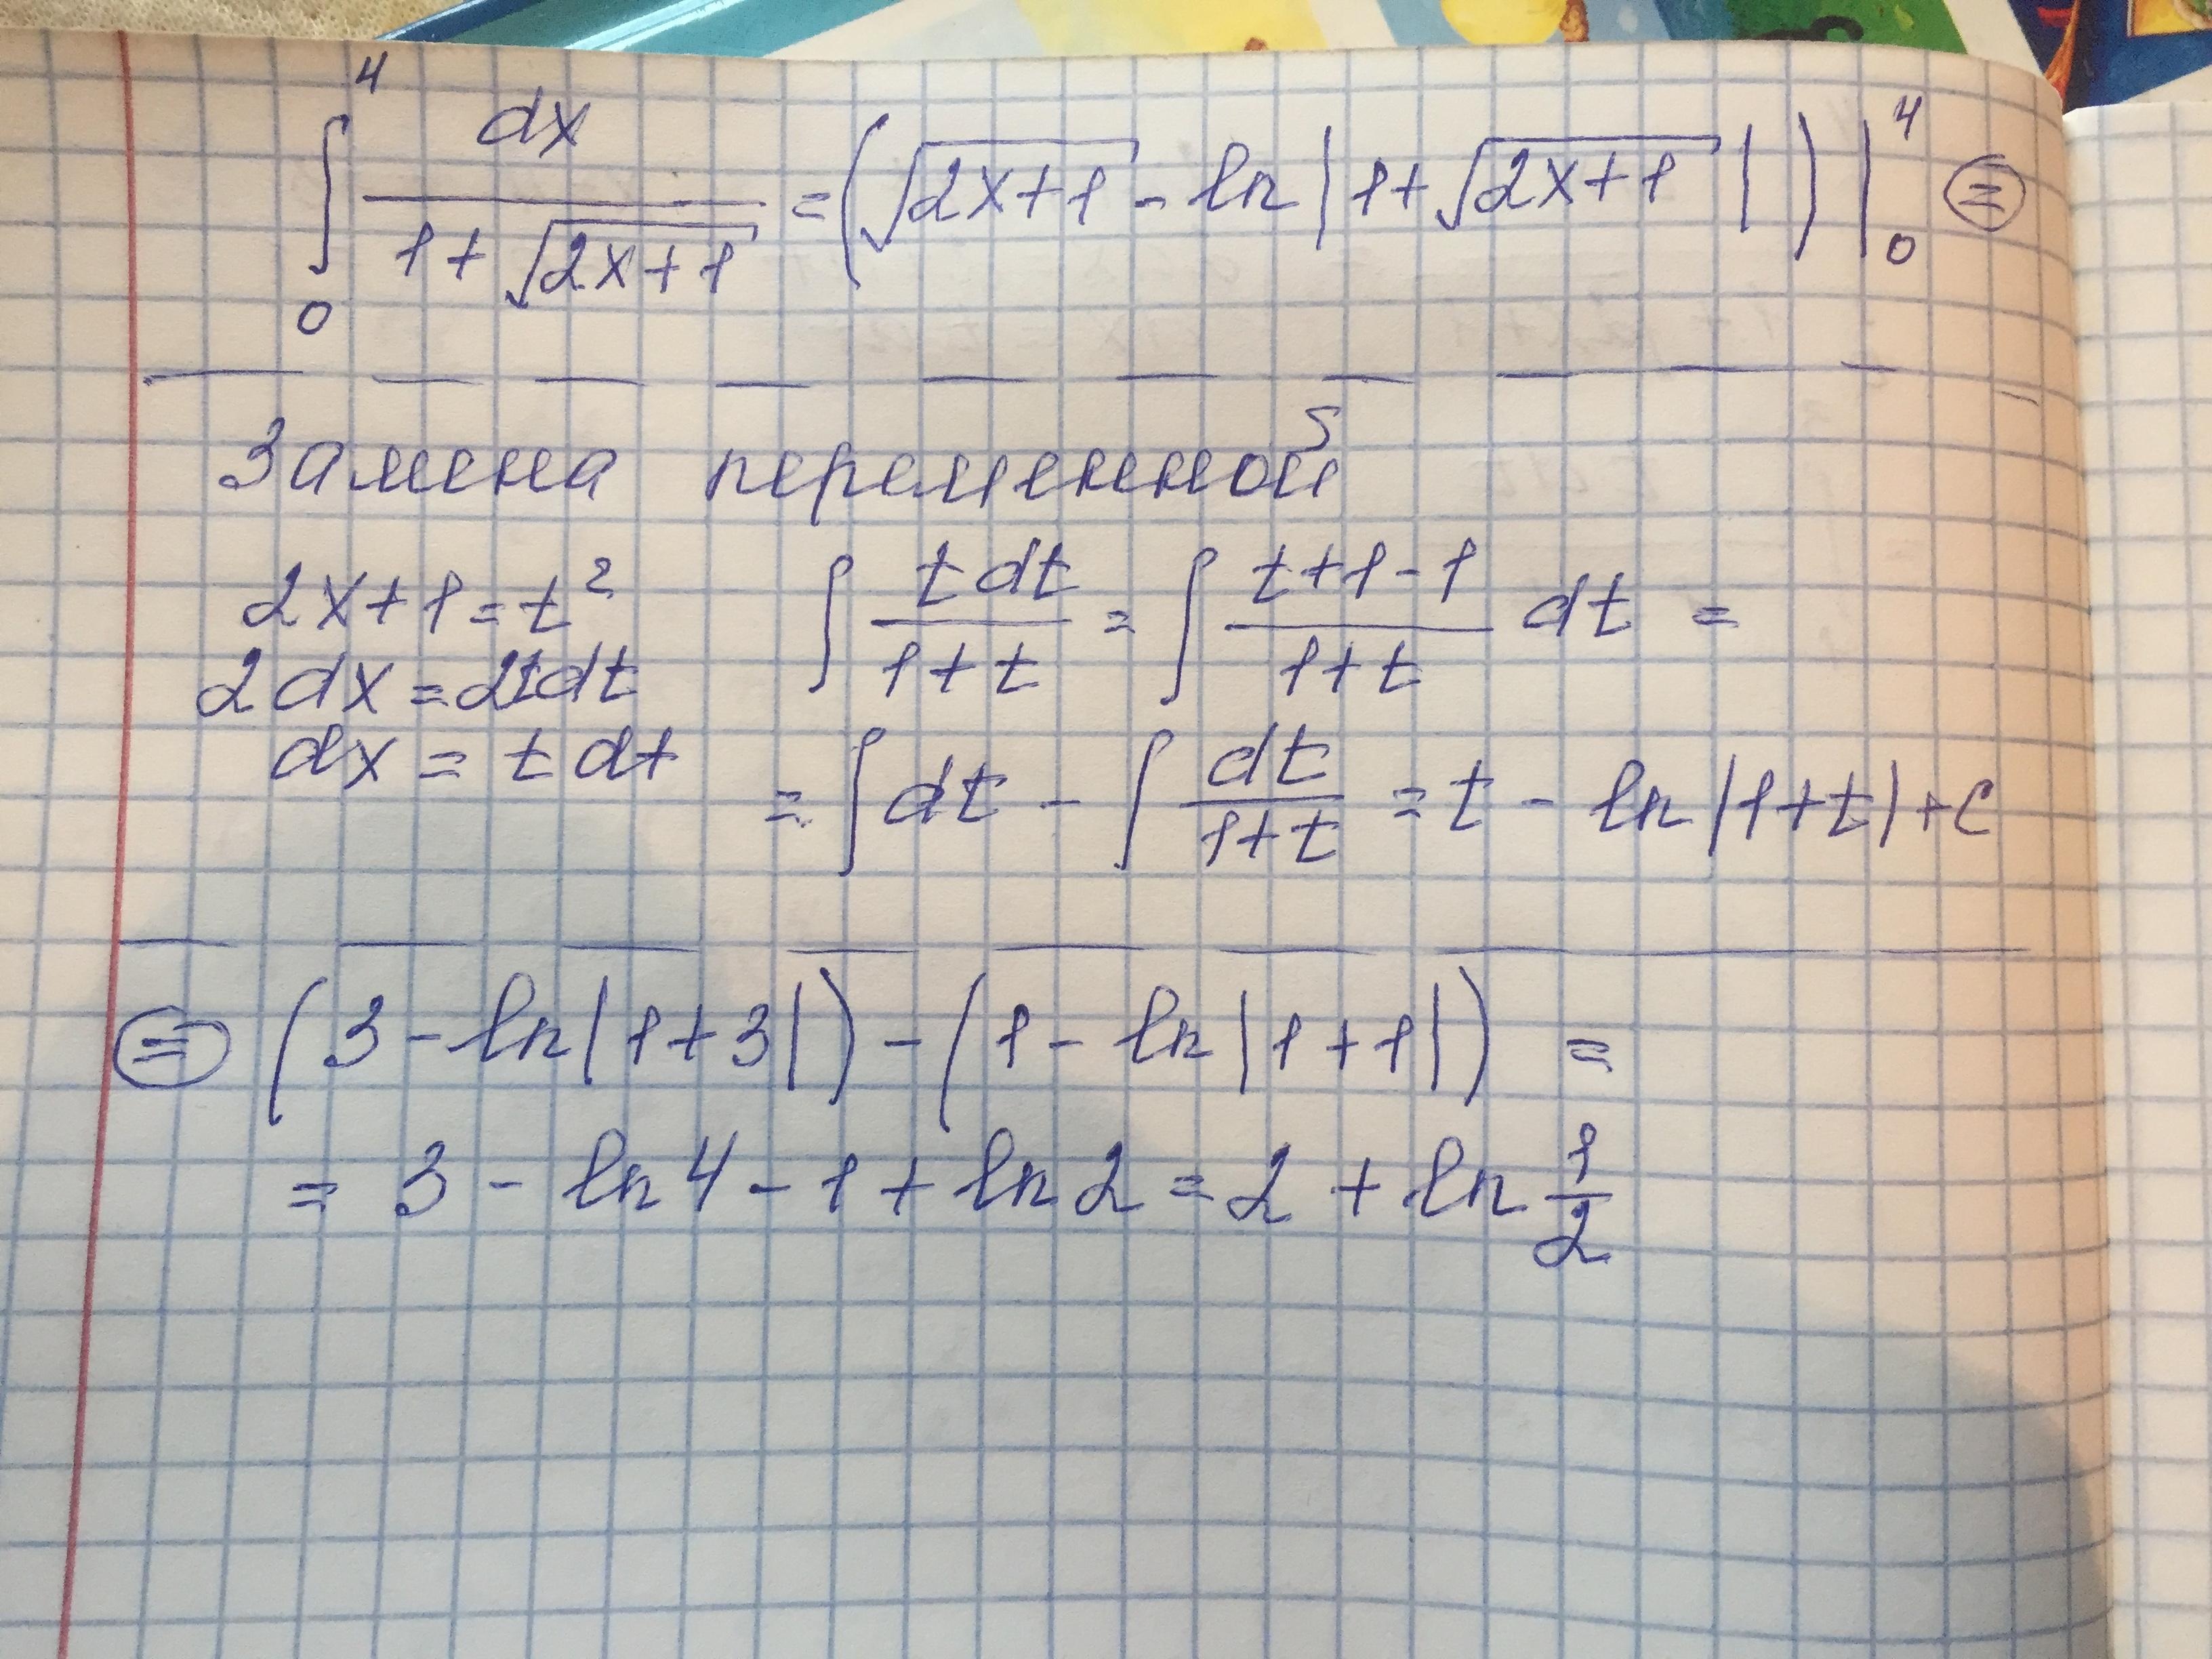 ∫₀⁴ dx / (1 + √(2x+1)) = (√(2x+1) - ln|1+√(2x+1)|)|₀⁴ ⊜
Замена переменной
2x+1=t² ∫ t dt / (1+t) = ∫ (t+1-1) / (1+t) dt =
2dx=2tdt
dx = t dt = ∫dt - ∫ dt / (1+t) = t - ln|1+t|+c
⊜ (3 - ln|1+3|) - (1 - ln|1+1|) =
= 3 - ln4 - 1 + ln2 = 2 + ln 1/2